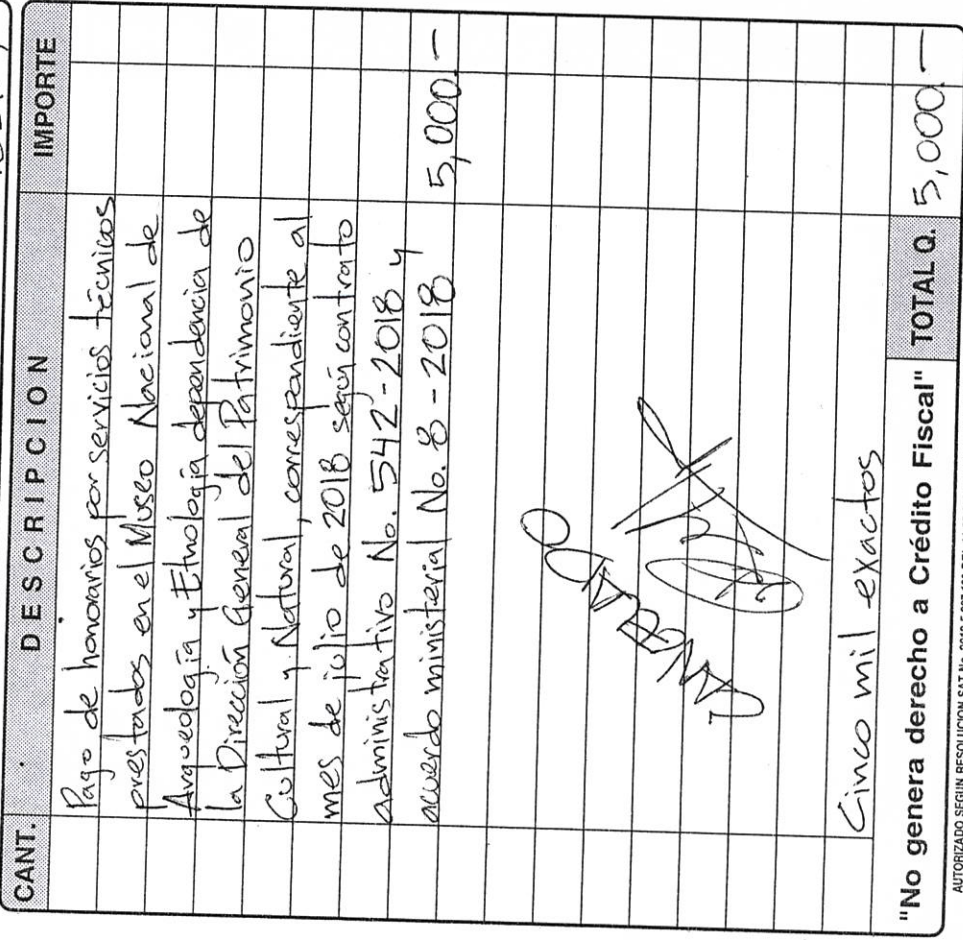 CANT. DESCRIPCION IMPORTE
Pago de honorarios por servicios técnicos
prestados en el Museo Nacional de
Arqueología y Etnología dependencia de
la Dirección General del Patrimonio
Cultural y Natural, correspondiente al
mes de julio de 2018 según contrato
administrativo No. 542-2018 y
acuerdo ministerial No. 8-2018 5,000.-
CANCELADO
Cinco mil exactos
"No genera derecho a Crédito Fiscal" TOTAL Q. 5,000.-
AUTORIZADO SEGUN RESOLUCION SAT No.